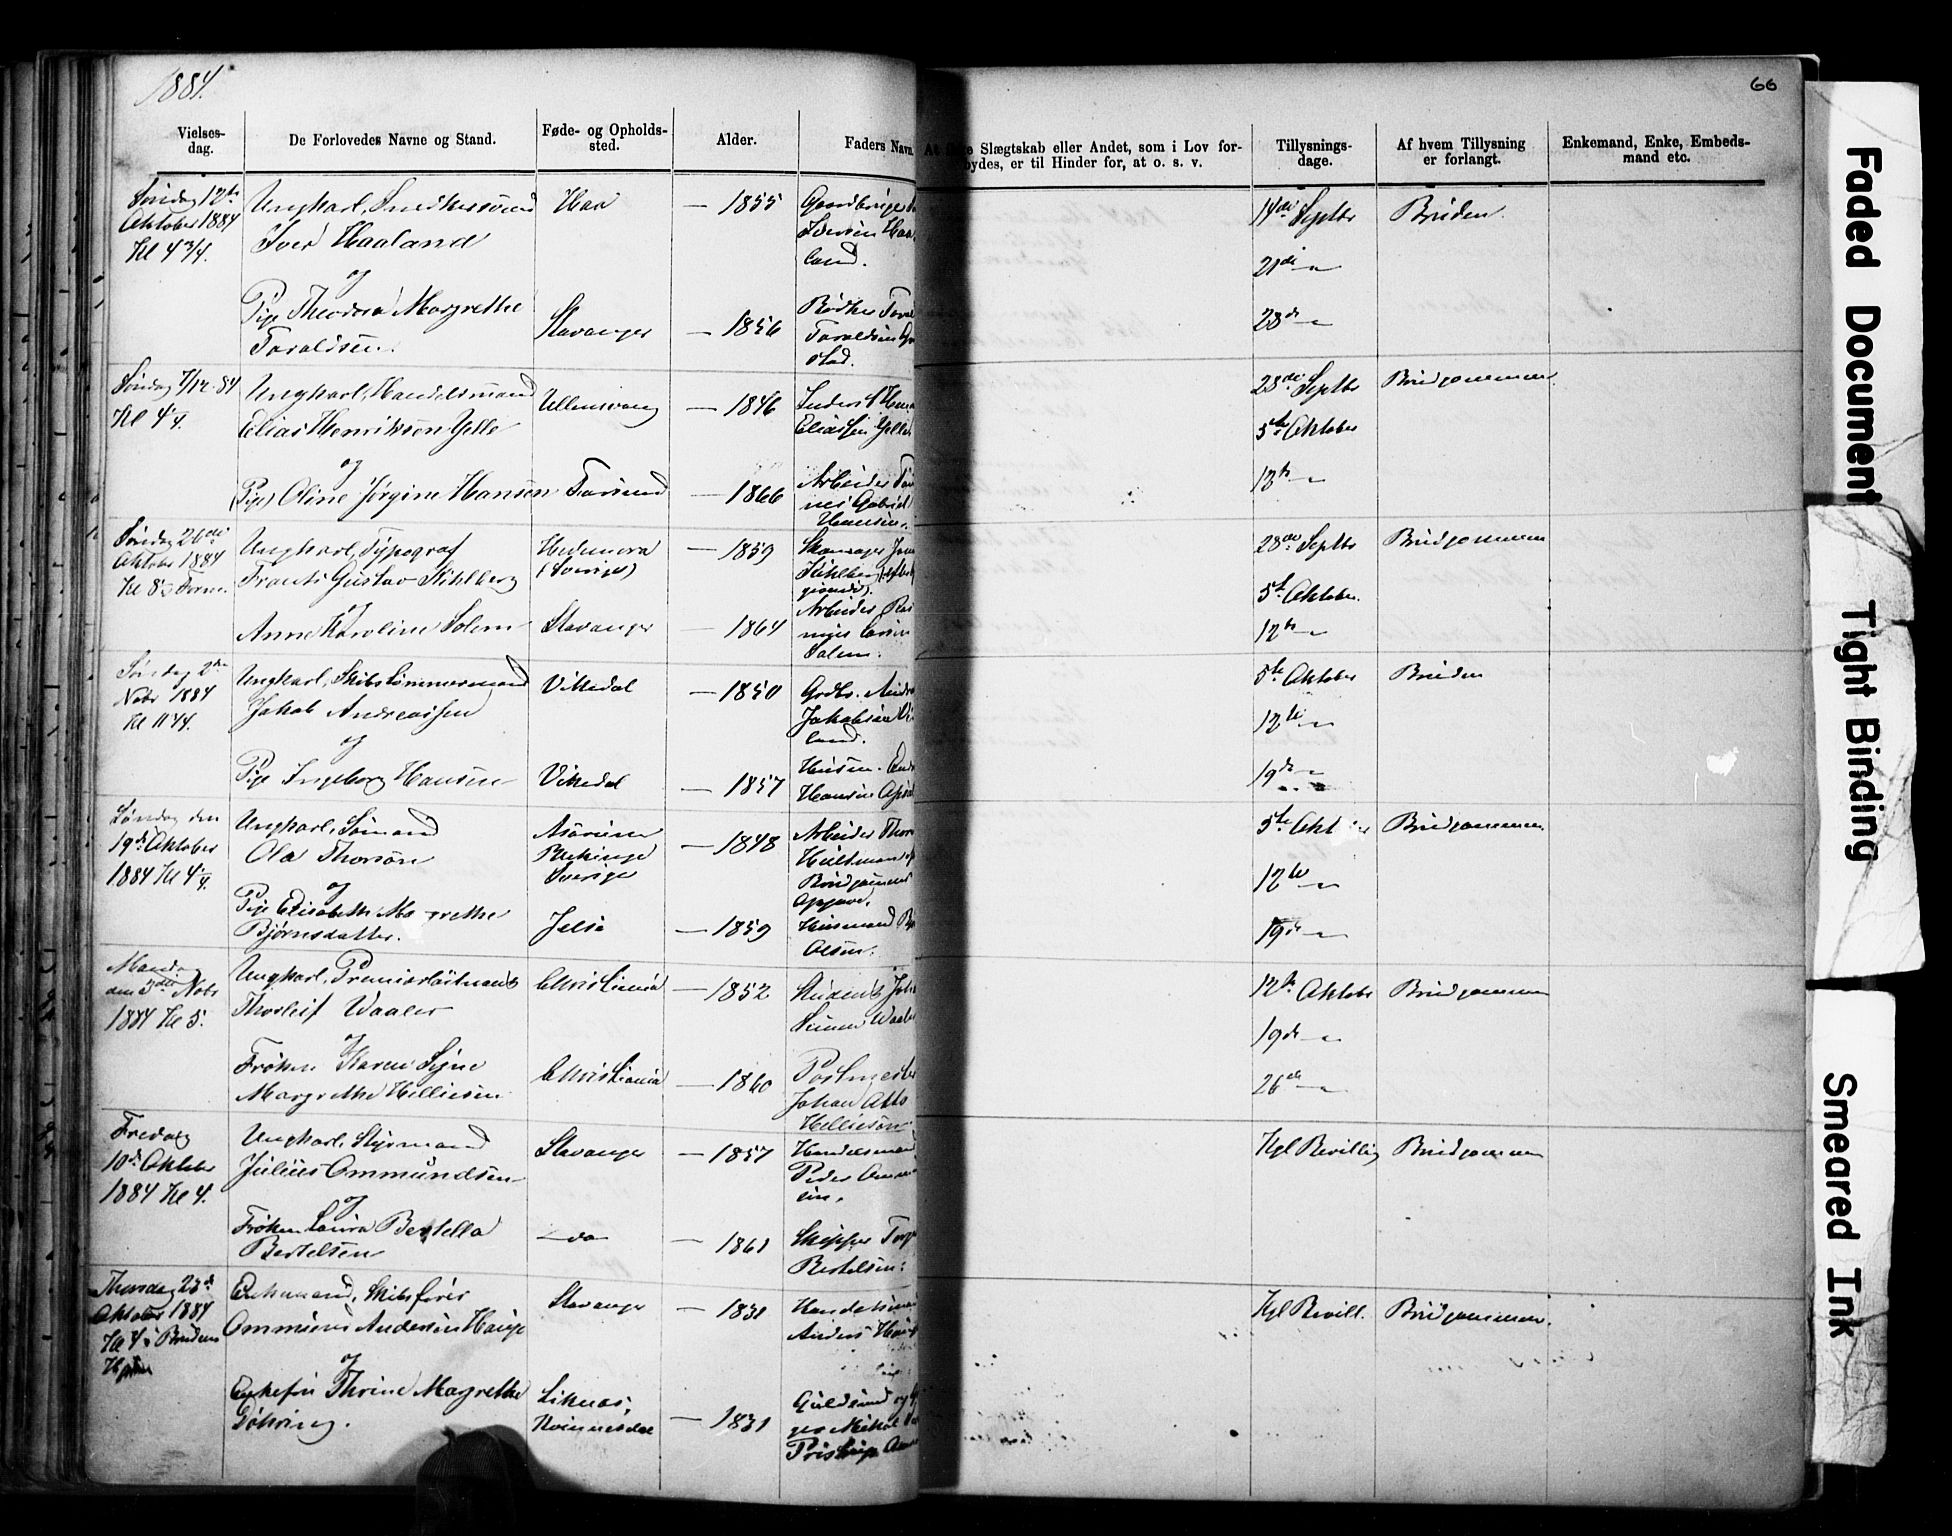 1884.
66
Vielses-
dag.
De Forlovedes Navne og Stand.
Føde- og Opholds-
sted.
Alder.
Faders Navn.
Slægtskab eller Andet, som i Lov for-
bydes, er til Hinder for, at o. s. v.
Tillysnings-
dage.
Af hvem Tillysning
er forlangt.
Enkemand, Enke, Embeds-
mand etc.
Søndag 12te
Oktober 1884
Kl 4 3/4.
Ungkarl, Snedkersvend
Iver Haaland
og
Pige Theodora Margrethe
Taraldsen.
Haa
Stavanger
— 1855
— 1856
Gaardbruger
Iversen Haa
land.
Bødker
Taraldsen
stad.
14de Septbr
21de — " —
28de — " —
Bruden.
Søndag 7/12-84
Kl 4 1/4.
Ungkarl, Handelsmand
Elias Henriksen Jelle
og
Pige Oline Jørgine Hansen
Ullensvang
Farsund
— 1846
— 1866
Eliassen Jelle
Arbeider
nes Gabriel
Hansen.
28de Septbr
5te Oktober
12te — " —
Brudgommen
Søndag 26de
Oktober 1884
Kl 8 1/2 Form.
Ungkarl, Typograf
Frants Gustav Kihlberg
og
Anne Karoline Solem
Hedemora
(Sverige)
Stavanger
— 1859
— 1864
Skomager
Kihlberg
Arbeider
28de Septbr
5te Oktober.
12te — " —
Brudgommen
Søndag 2den
Novbr 1884
Kl 11 1/4.
Ungkarl, Skibstømmermand
Jakob Andreassen
og
Pige Ingeborg Hansen
Vikedal
Vikedal
— 1850
— 1857
Grdbr.
Jakobsen
land.
Husm.
Hansen
5te Oktober
12te — " —
19de — " —
Bruden
Søndag den
19de Oktober
1884 Kl 4 1/4.
Ungkarl, Sømand
Ola Thorson
og
Pige Elisabeth Margrethe
Bjørnsdatter.
Asarum
Blekinge
Sverige
Jelse
— 1848
— 1859
Arbeider Thor
Hultman
Brudgommens
Opgave.
Husmand
Olsen.
5te Okt
12te — " —
19de — " —
Brudgommen
Mandag
den 3die Novbr
1884 Kl 5.
Ungkarl, Premierløitnant
Thorleif Waaler
og
Frøken Karen Signe
Margrethe Helliesen
Christiania
Christiania
— 1852
— 1860
Student
Waaler
Postmester
Johan Otto
Helliesen
12te Oktober
19de — " —
26de — " —
Brudgommen
Fredag
10de Oktober
1884 Kl 4.
Ungkarl, Styrmand
Julius Ommundsen
og
Frøken Laura Bertella
Bertelsen
Stavanger
— do —
— 1857
— 1861
Handelsmand
Peder
sen.
Skipper
Bertelsen.
Kgl Bevilling
Brudgommen
Thorsdag 23de
Oktober 1884
Kl 4 i Brudens
Hjem
Enkemand, Skibsfører
Ommund Andersen Hauge
og
Enkefru Thrine Margrethe
Døhring.
Stavanger
Liknæs,
Kvinesdal
— 1831
— 1831
Handelsmand
Anders
Guldsmed og
Kgl Bevill.
Brudgommen.
Faded Document
Tight Binding
Smeared Ink